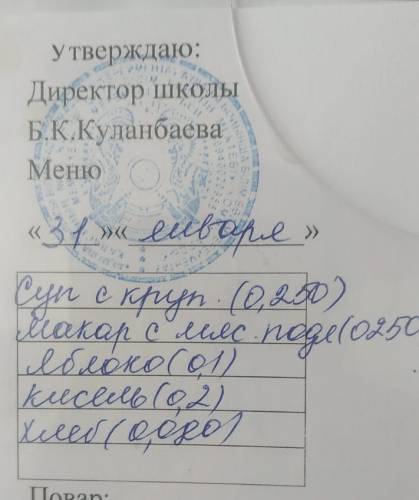 Утверждаю:
Директор школы
Б.К.Куланбаева
Меню
«31»«января»
Суп с круп. (0,250)
Макар с мяс. подл (0250
Яблоко (0,1)
кисель (0,2)
Хлеб (0,020)
Повар: